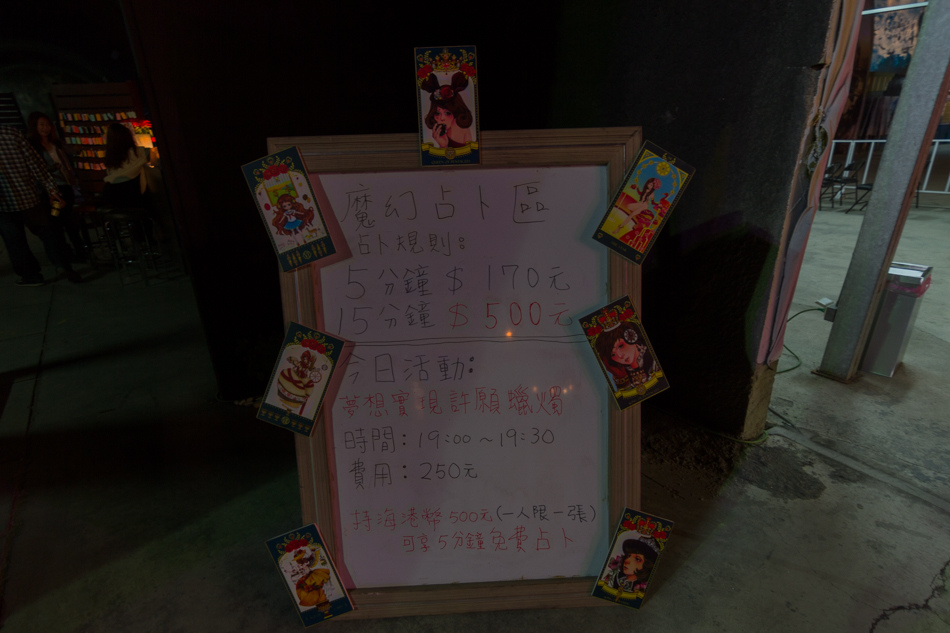 魔幻占卜區
占卜規則:
5分鐘 $ 170元
15分鐘 $ 500元
今日活動:
夢想實現許願蠟燭
時間: 19:00 ~ 19:30
費用: 250元
持海港幣500元(一人限一張)
可享5分鐘免費占卜